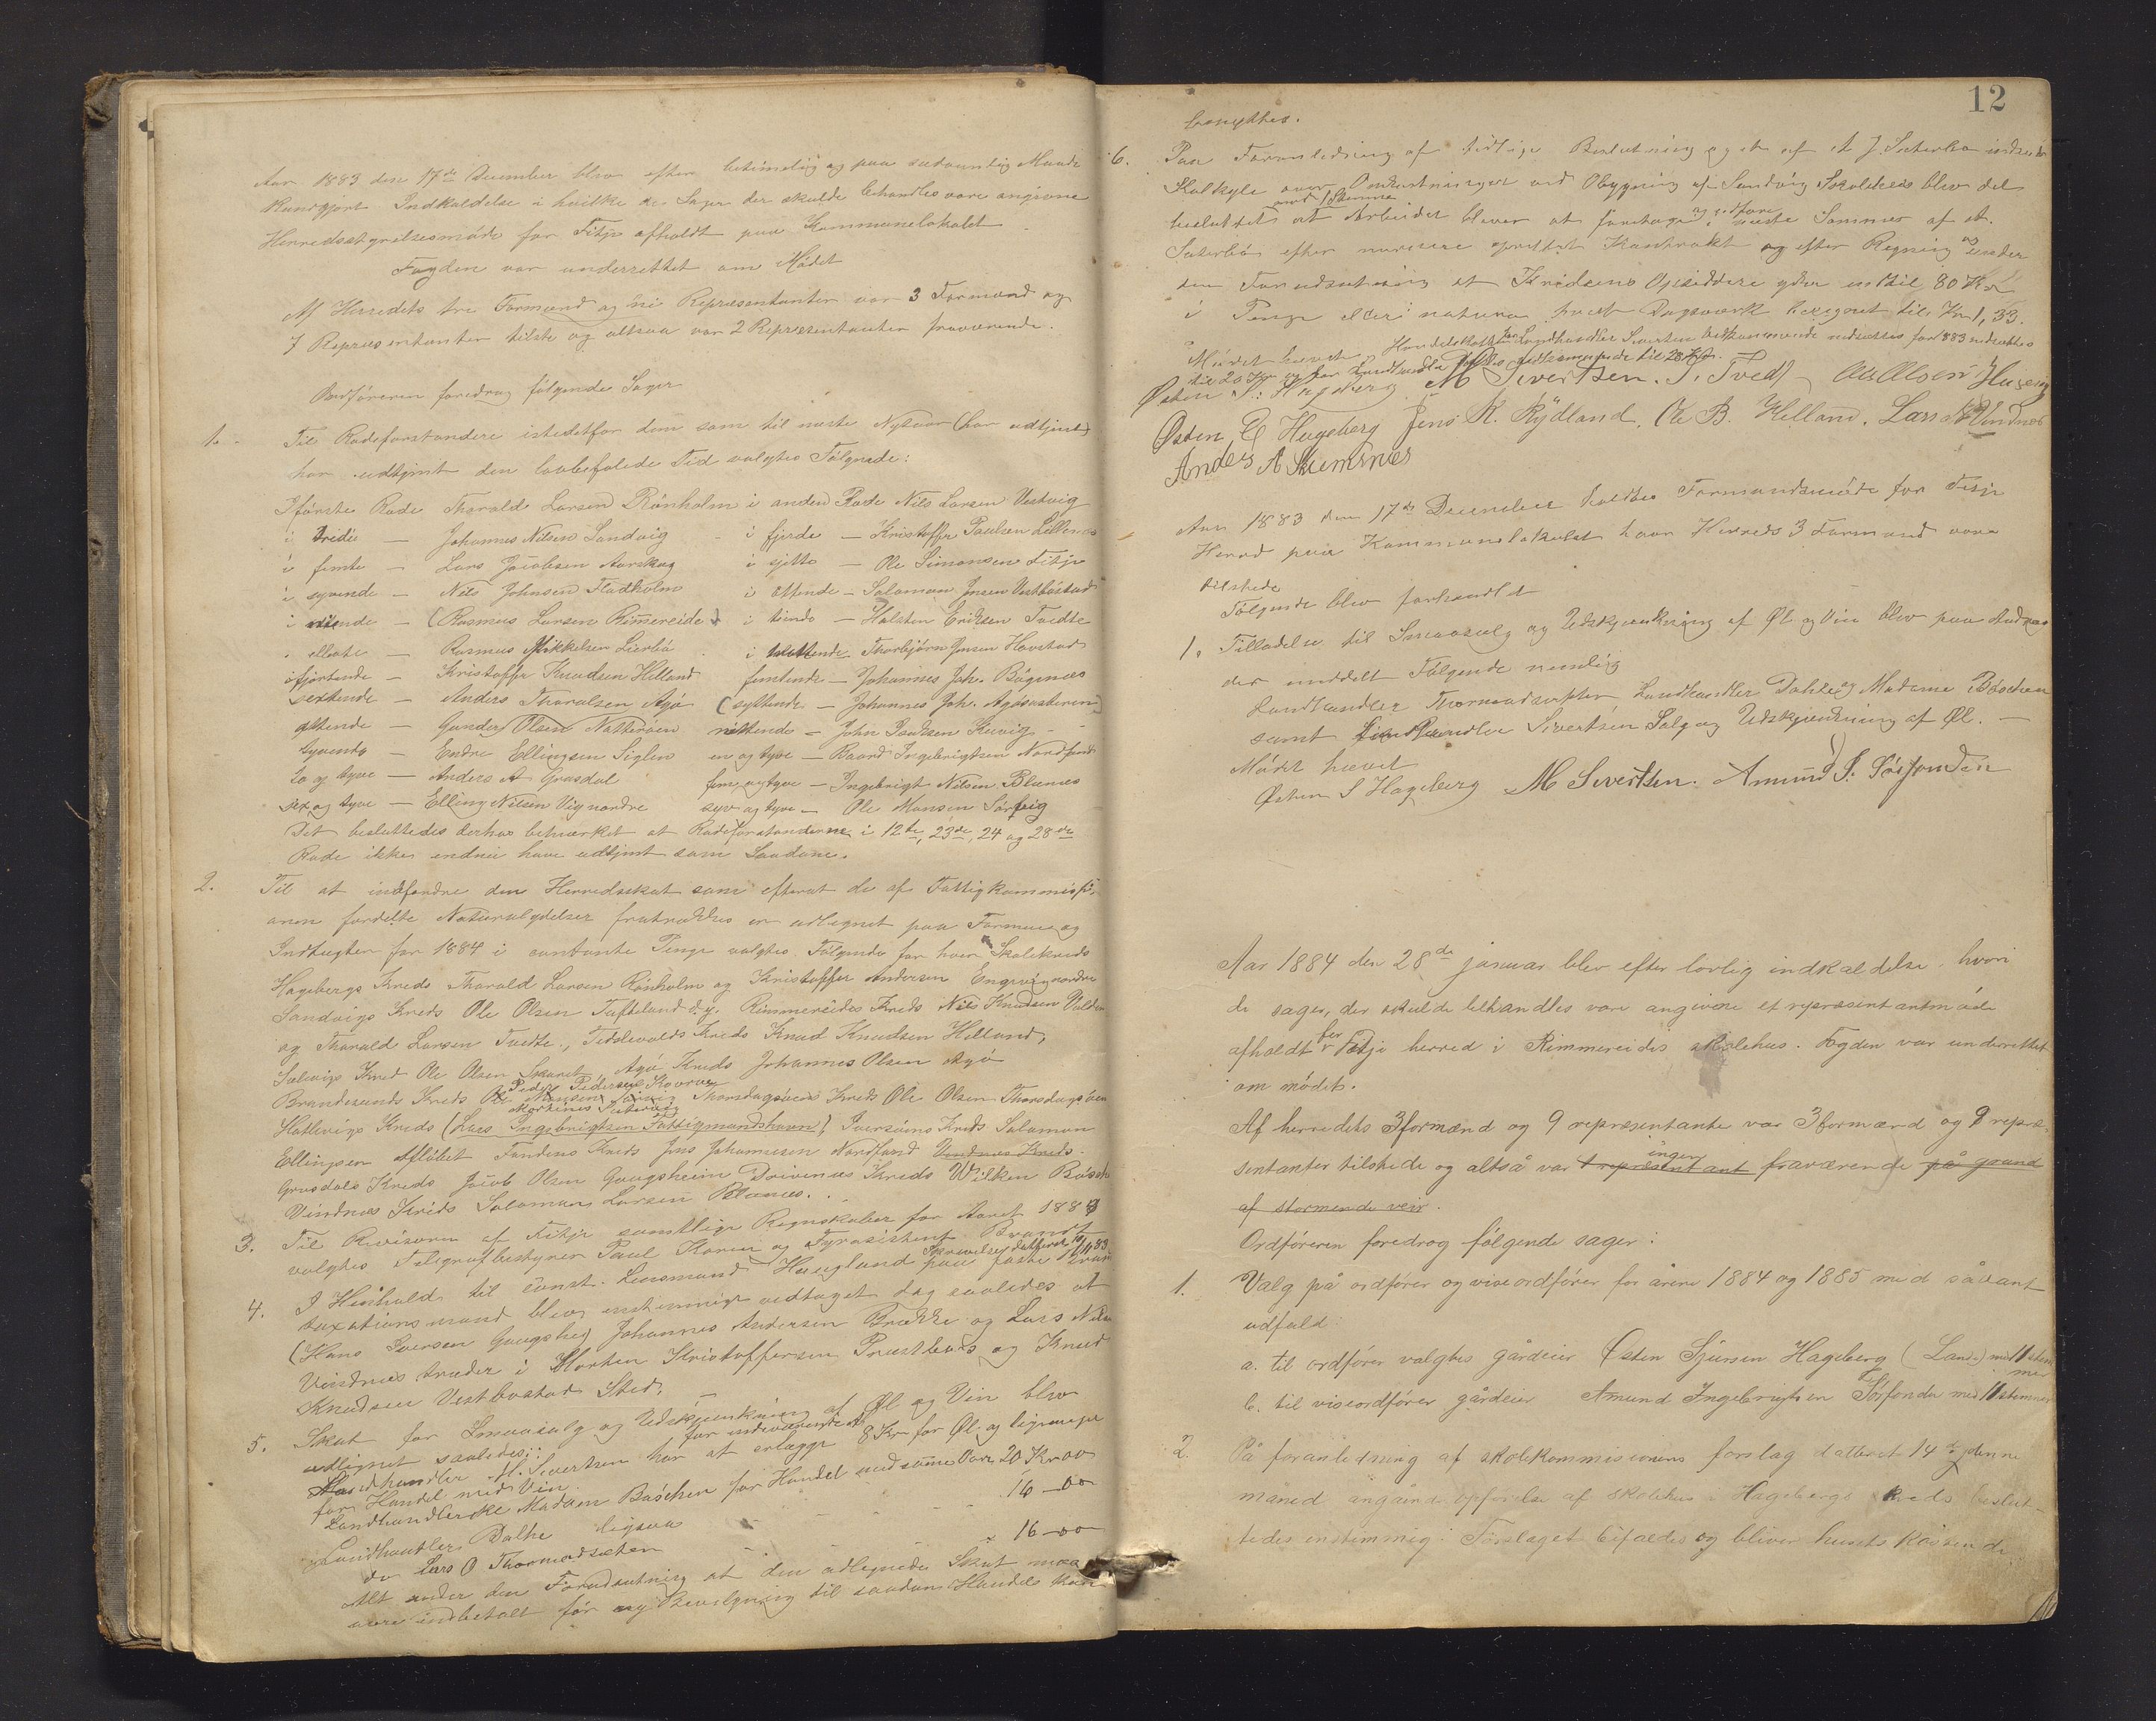 Aar 1883 den 17de December blev efter betimelig og paa sedvanlig Maade
Kundgjort Indkaldelse i hvilke de Sager der skulde behandles vare angivne
Herredsstyrelsesmøde for Fitje afholdt paa Kommunelokalet
Fogden var underrettet om Mødet
Af Herredets tre Formænd og ni Repræsentanter var 3 Formænd og
7 Repræsentanter tilstede og altsaa var 2 Repræsentanter fraværende.
Ordføreren foredrog følgende Sager
1. Til Rodeforstandere istedetfor dem som til næste Nytaar (har udtjent)
har udtjent den lovbefalede Tid valgtes Følgende:
I første Rode Thorald Larsen Rönholm i anden Rode Nils Larsen Vestvig
i tredie — Johannes Nilsen Sandvig - i fjerde — Kristoffer Paulsen Lillenes
i femte — Lars Jacobsen Aarskog i sjette — Ole Simonsen Fitje
i syvende — Nils Johnsen Fladholm i ottende — Salomon Jensen Vestbøstad
i niende — (Rasmus Larsen Rimereide) i tiende — Halsten Eriksen Tvedte
i ellevte — Rasmus Mikkelsen Lierbö i trettende Thorbjörn Jensen Havstad
i fjortende — Kristoffer Knudsen Helland femtende — Johannes Joh. Bögenæs
sextende — Anders Tharalsen Agö (syttende — Johannes Joh. Agösæteren)
attende — Gunder Olsen Natterøen nittende — John Paulsen Kuvig
tyvende — Endre Ellingsen Siglen en og tyve — Baard Ingebrigtsen Nordfond
to og tyve — Anders A Grasdal fem og tyve — Ingebrigt Nilsen Blænes
sex og tyve — Elling Nilsen Vig nordre syv og tyve — Ole Monsen Sørvig
Det besluttedes derhos bemærket at Rodeforstanderne i 12te, 23de, 24 og 28de
Rode ikke endnu have udtjent som Saadane.
2. Til at indfordre den Herredsskat som efterat de af Fattigkommissi-
onen fordelte Naturalydelser fratrækkes er udlignet paa Formue og
Indtægter for 1884 i contante Penge valgtes Følgende for hver Skolekreds
Hagebergs Kreds Thorald Larsen Rönholm og Kristoffer Andersen Engevig nordre
Sandvigs Kreds Ole Olsen Tufteland d.y. Rimmereides Kreds Nils Knudsen
og Tharald Larsen Tvedte., Kreds Knud Knudsen Helland,
Kreds Ole Olsen Skaret, Agö Kreds Johannes Olsen Agö
Peder Pedersen Kovrevg
Brandesunds Kreds Ole Monsen Sørvig Thorsdagsöens Kreds Ole Olsen Thorsdagsöen
Hatlevigs Kreds (Lars Ingebrigtsen Fattigmandshavn) Iversöens Kreds Salamon
Ellingsen Aflöbet Fondens Kreds Jens Johannesen Nordfond Vindnæs Kreds
Grasdals Kreds Jacob Olsen Gaugsheim Drivenæs Kreds Wilken Böschen
Vindnæs Kreds Salamon Larsen Blænes.
3. Til Revisorer af Fitje samtlige Regnskaber for Aaret 1883
valgtes Telegrafbestyrer Paul Koren og Fyrassistent Brandt
4. I Henhold til const. Lensmand Haugland Skrivelse dateret paa faste
taxationsmænd blev enstemmigt vedtaget dog saaledes at
(Hans Iversen Gaugshei) Johannes Andersen Brække og Lars Nilsen
Vindnæs træder i Morten Kristoffersen Præstbøs og Knud
Knudsen Vestbøstad Sted. —
5. Skat for Smaasalg og Udskjænkning af Øl og Vin blev
udlignet saaledes: for indeværende Aar
Landhandler M. Sivertsen har at erlægge 8 Kr for Øl og
for Handel med Vin.
Landhandlerske Madam Böschen for Handel med samme Varer 20 Kr 00
Landhandler Dalhe ligesaa 16 — 00
do Lars O Thormodsæter — „ 16 — 00
Alt under den Forudsætning at den udlignede Skat maa
være indbetalt før ny Bevilgning til saadan Handel kan
12
benyttes.
6. Paa Foranledning af tidlige Beslutning og et af A J. Sæterbø indsendt
Kalkyle over Omkostninger ved Obygning af Sandvig Skolehus blev det
mod 1 Stemme
besluttet at Arbeidet bliver at foretage og udføre næste Sommer af A.
Sæterbö efter nærmere oprettet Kontrakt og efter Regning og under
den Forudsætning at Kredsens Opsiddere yder indtil 80 Kr
i Penge eller i natura hvert Dagsværk beregnet til Kr 1,33.
Mødet hævet. Handelsskatten for Landhandler Sivertsen vedkommende nedsættes for 1883
til 20 Kr og for Landhandler Dahles vedkommende til 28 Kr.
Østen S. Hageberg M Sivertsen. Tvedt Ole Olsen
Østen E Hageberg Jens K. Rydland. Ole B. Helland. Lars N Vindnes
Anders A Skumsnes
Aar 1883 den 17de December holdtes Formandsmøde for Fitje
Herred paa Kommunelokalet hvor Herreds 3 Formænd vare
tilstede
Følgende blev forhandlet
1. Tilladelse til Smaasalg og Udskjænkning af Øl og Vin blev paa Andragen-
der meddelt Følgende nemlig
Landhandler Thormodsæter Landhandler Dahle og Madame Böschen
samt Landhandler Sivertsen Salg og Udskjænkning af Øl. —
Mødet hævet
Østen S Hageberg M Sivertsen. Amund I. Sörfonden
Aar 1884 den 28de januar blev efter lovlig indkaldelse, hvori
de sager, der skulde behandles vare angivne et representantmöde
afholdt for Fitje herred i Rimmereides skolehus. Fogden var underrettet
om mödet.
Af herredets 3 formænd og 9 repræsentante var 3 formænd og 9 repræ-
ingen
sentanter tilstede og altså var 1 repræsentant fraværende på grund
af stormende veir.
Ordföreren foredrog følgende sager:
1. Valg på ordförer og viseordförer for årene 1884 og 1885 med sådant
udfald:
a. til ordförer valgtes gårdeier Østen Sjursen Hageberg (Land.) med 11 stem-
mer
b. til viseordförer gårdeier Amund Ingebrigtsen Sörfonden med 11 stemmer
2. På foranledning af skolekommisionens forslag datteret 14de denne
måned angående opförelse af skolehus i Hagebergs kreds beslut-
tedes enstemmig: Forslaget bifaldes og bliver husets